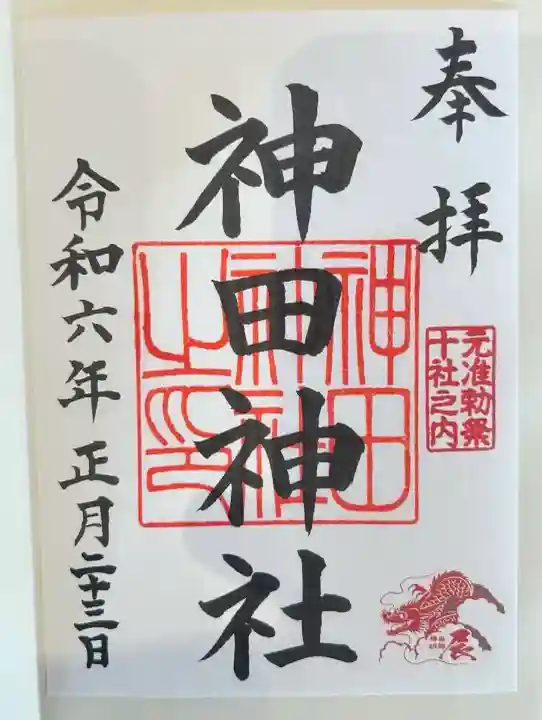 奉拝
元准勅祭
十社之内
辰
神田神社
神田
神社
之印
令和六年正月二十三日